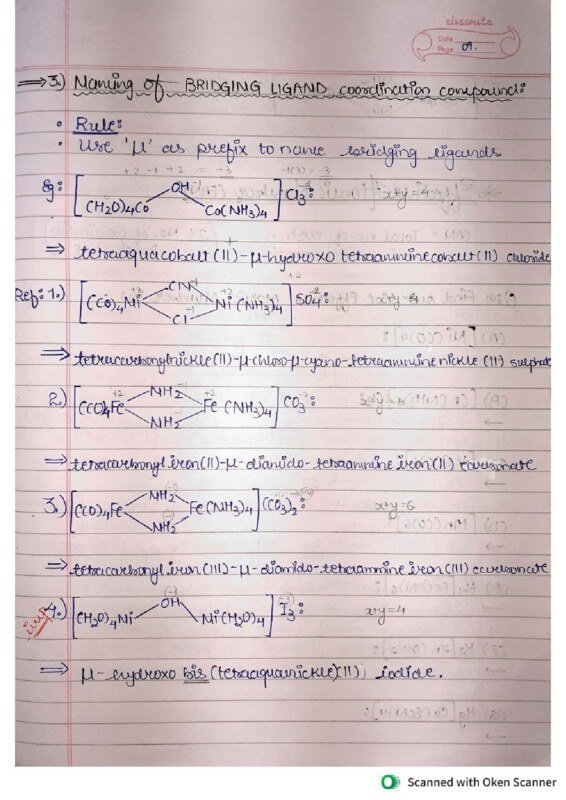 classmate
Date
Page 09.
⇒ 3.) Naming of BRIDGING LIGAND coordination compound:
• Rule:
• Use 'μ' as prefix to name bridging ligands
+2 -1 +2 = +3 -1(3) = -3
Eg: [(H2O)4Co OH Co(NH3)4] Cl3: x+y=4
⇒ tetraaquacobalt (II) - μ-hydroxo tetraammine cobalt (II) chloride
Ref: 1.) [(CO)4Ni CN Cl Ni(NH3)4] SO4:
⇒ tetracarbonylnickle(II)-μ-chloro-μ-cyano-tetraammine nickle (II) sulphate
2.) [(CO)4Fe NH2 NH2 Fe(NH3)4] CO3:
⇒ tetracarbonyl iron(II)-μ-diamido-tetraammine iron(II) carbonate
3.) [(CO)4Fe NH2 NH2 Fe(NH3)4] (CO3)2: x+y=6
⇒ tetracarbonyl iron(III)-μ-diamido-tetraammine iron(III) carbonate
imp 4.) [(H2O)4Ni OH Ni(H2O)4] I3: x+y=4
⇒ μ-hydroxo bis (tetraaquanickle)(II)) iodide.
Scanned with Oken Scanner